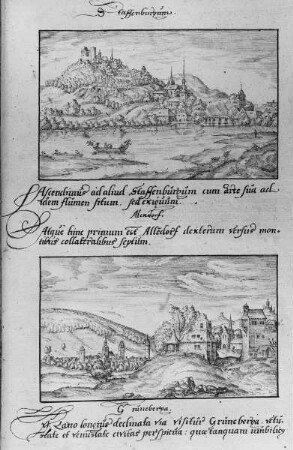 Staffenburgum.
Ascendimus ad aliud Staffenburgum cum arce sua ad
idem flumen situm, sed exiguum.
Alxdorf.
Atque hinc primum est Allsdorf dextrum versus mon-
tibus collateralibus septum.
Grüneberga.
Lano longius declinata via visitur Grüneberga vetu-
state et venustate civitas perspicua: quae tanquam umbilicus